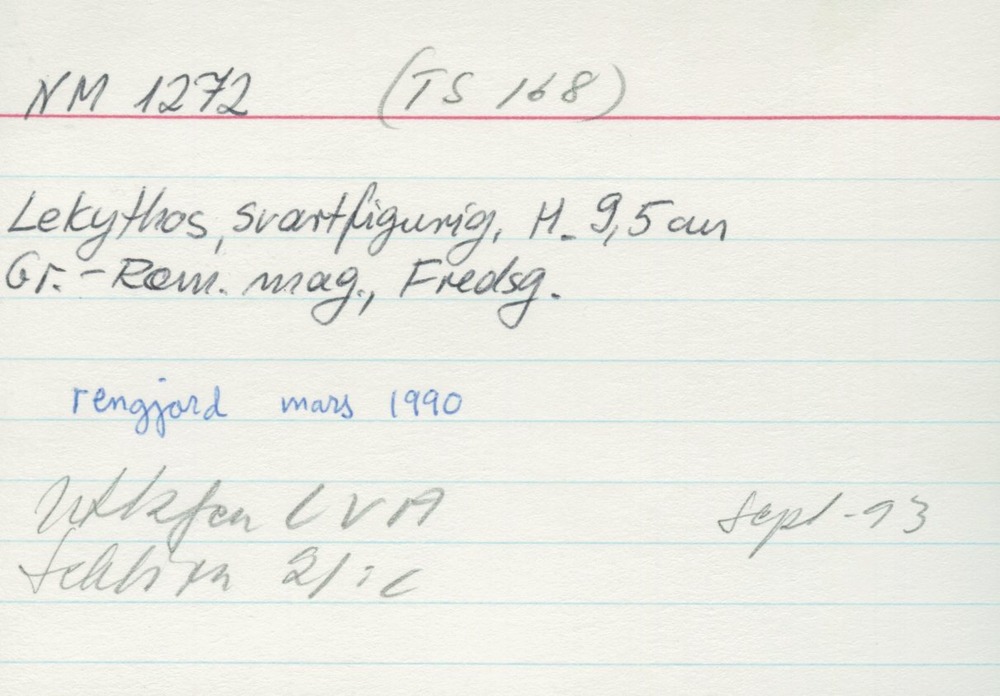 NM 1272 (TS 168)
Lekythos, svartfigurig, H. 9,5 cm
Gr.-Rom. mag., Fredsg.
rengjord mars 1990
LVA Sept -93
Sektion 21:c